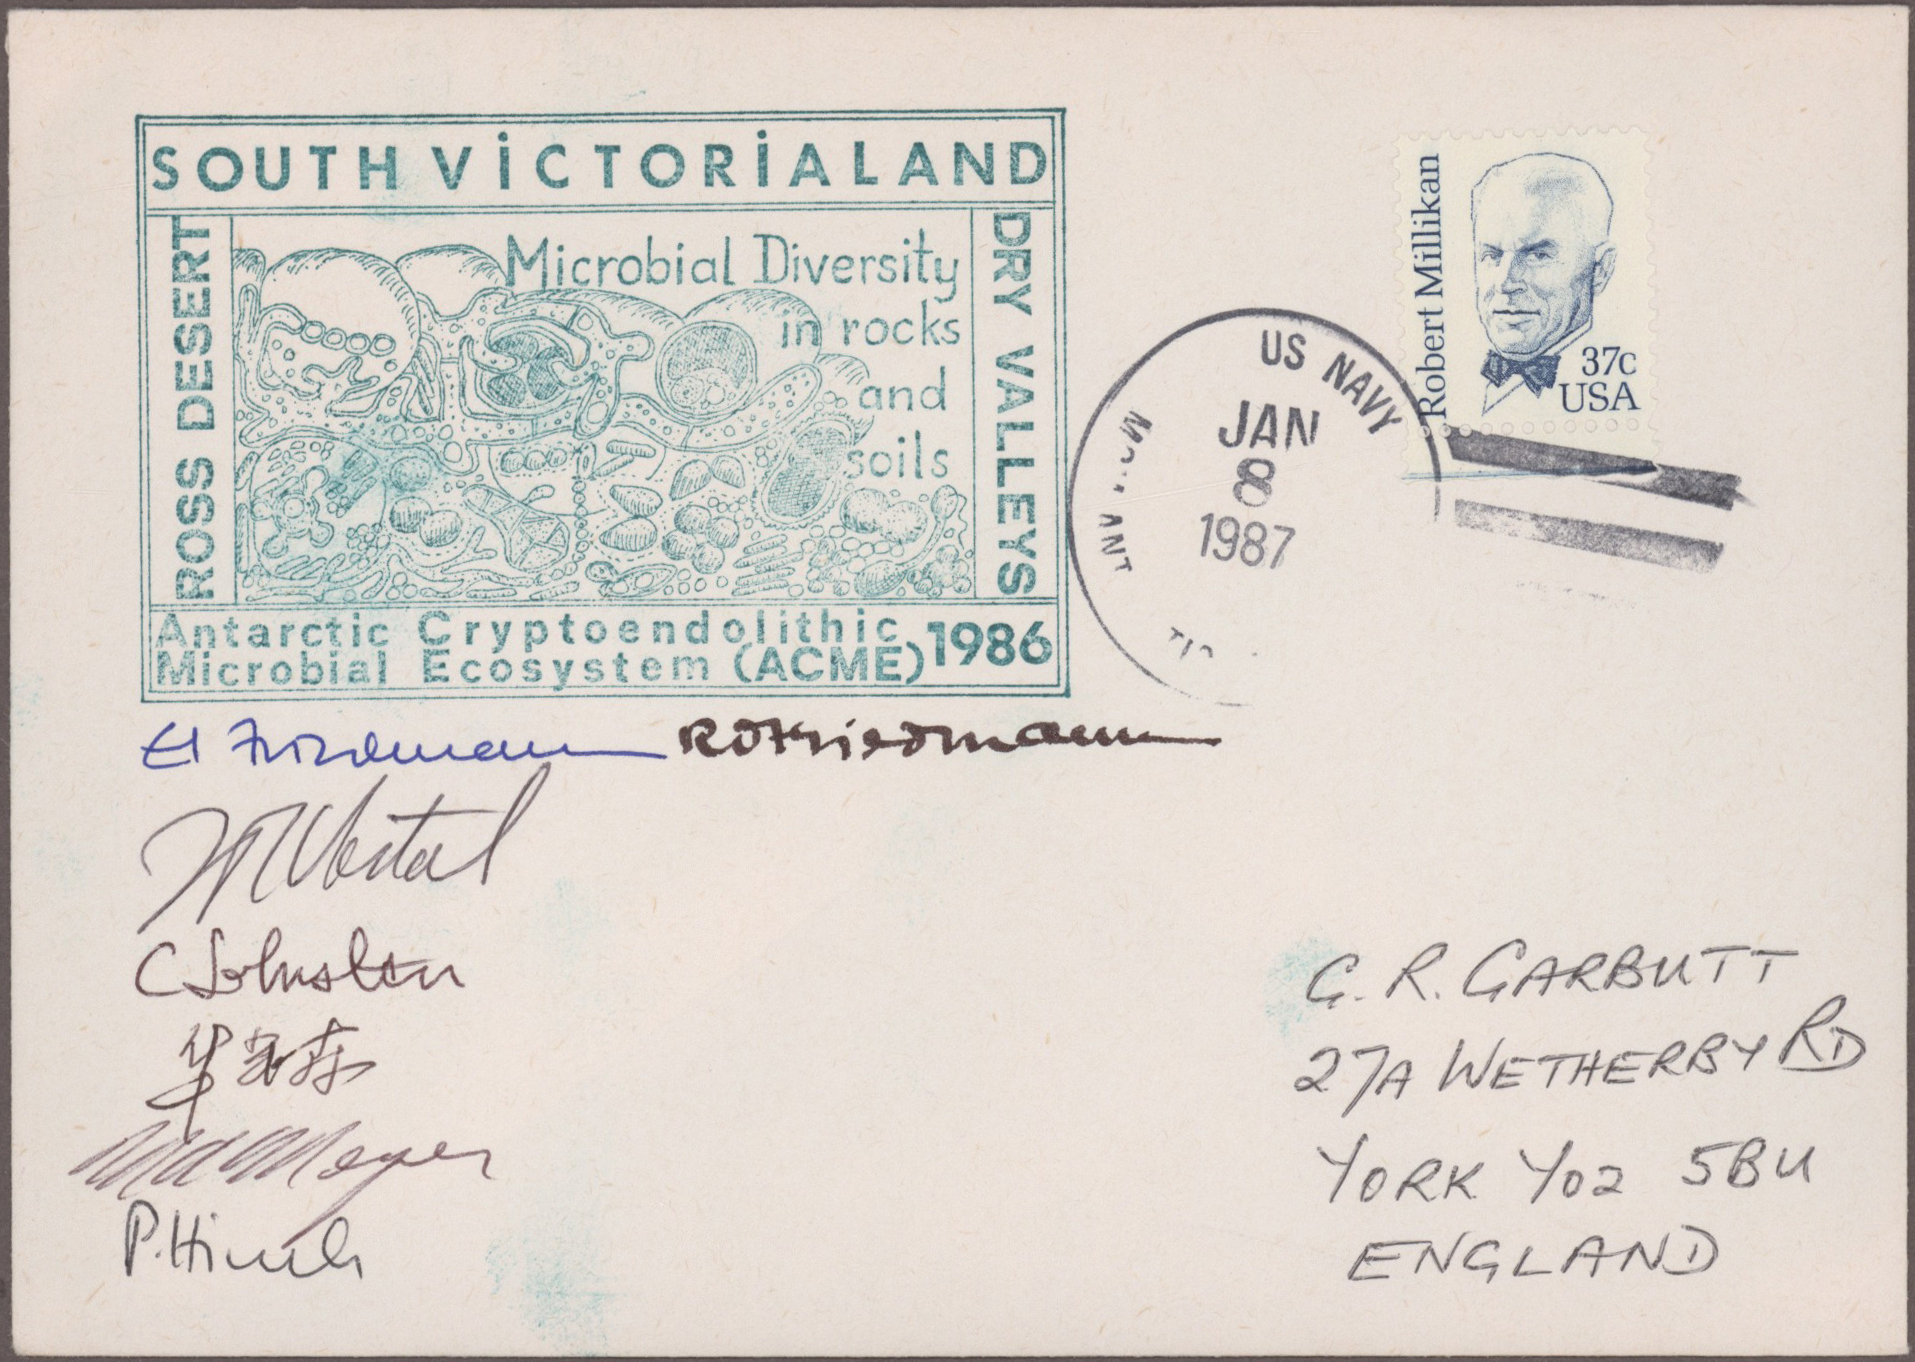 SOUTH VICTORIA LAND
ROSS DESERT
DRY VALLEYS
Microbial Diversity
in rocks
and
soils
Antarctic Cryptoendolithic
Microbial Ecosystem (ACME) 1986
US NAVY
JAN
8
1987
ANT
Robert Millikan
37c
USA
EI Friedmann
R O Friedmann
JR Vestal
C Johnston
Meyer
P. Hirsch
G. R. GARBUTT
27A WETHERBY RD
YORK YO2 5BU
ENGLAND